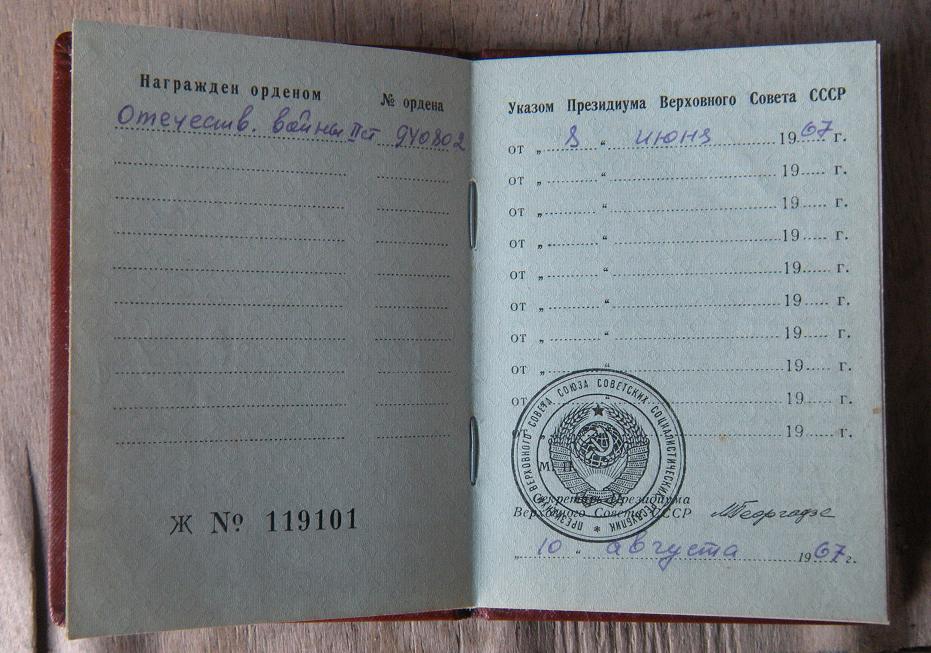 Награжден орденом № ордена
Отечеств. войны II ст 940802
Ж № 119101
Указом Президиума Верховного Совета СССР
от „ 8 “ июня 1967 г.
от „ “ 19 г.
от „ “ 19 г.
от „ “ 19 г.
от „ “ 19 г.
от „ “ 19 г.
от „ “ 19 г.
от „ “ 19 г.
от „ “ 19 г.
от „ “ 19 г.
ПРЕЗИДИУМ ВЕРХОВНОГО СОВЕТА СОЮЗА СОВЕТСКИХ СОЦИАЛИСТИЧЕСКИХ РЕСПУБЛИК
М. П.
Секретарь Президиума
Верховного Совета СССР МГеоргадзе
„ 10 “ августа 1967 г.